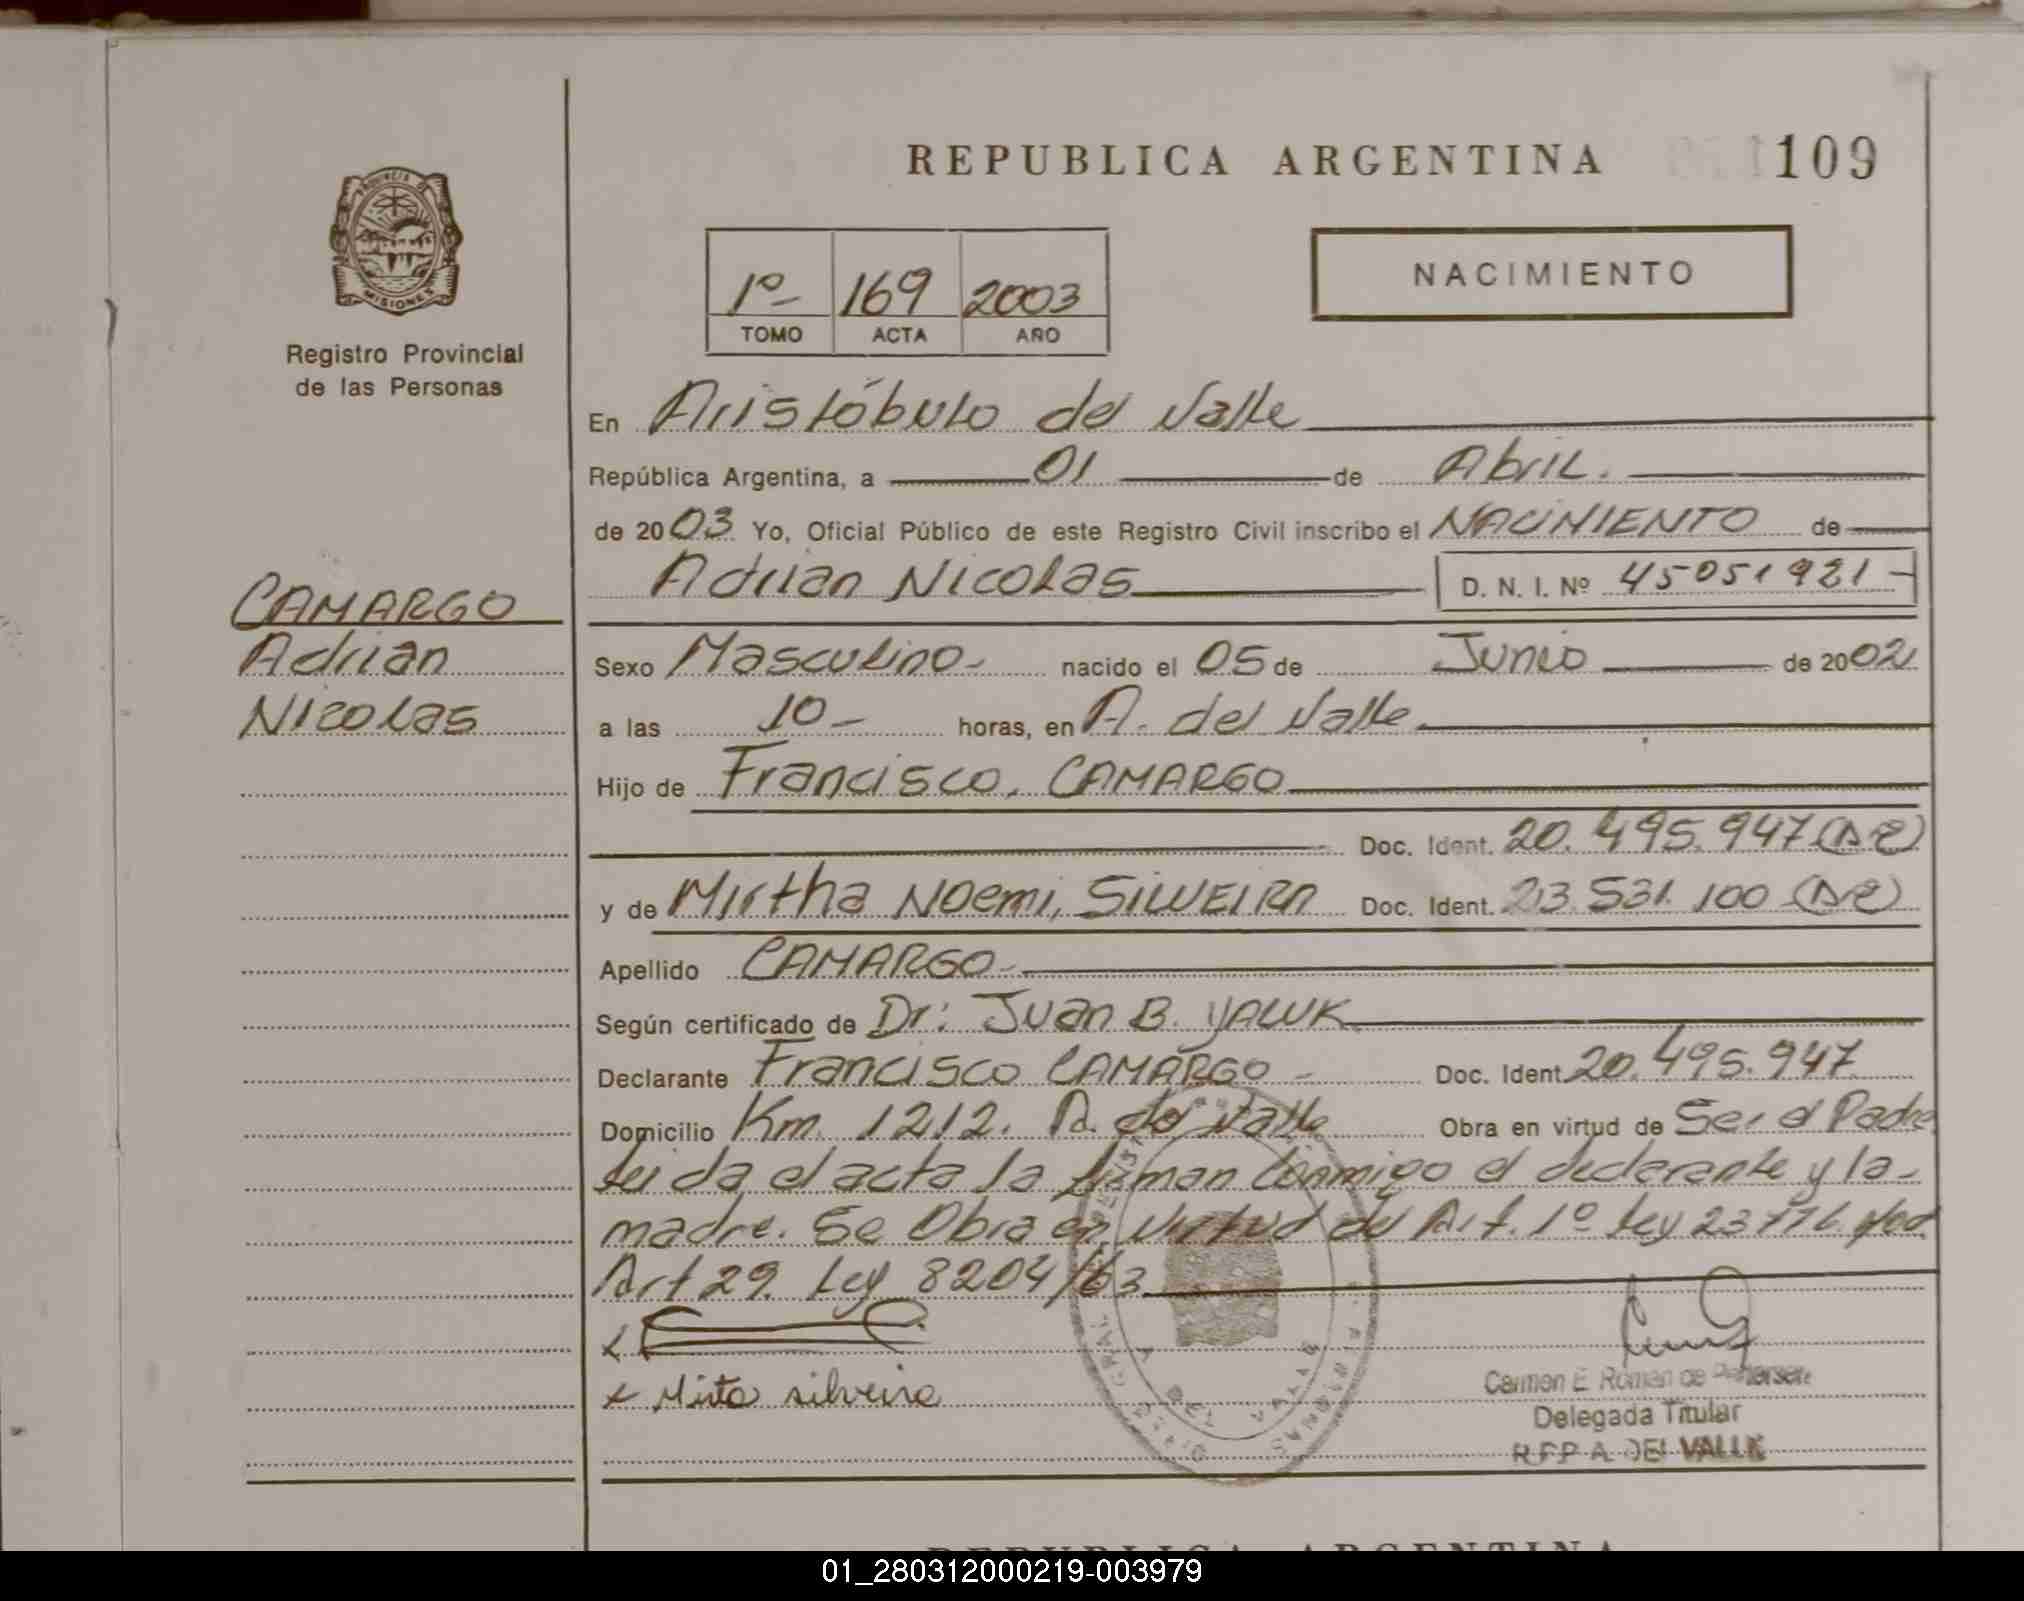 REPUBLICA ARGENTINA 109
PROVINCIA DE
MISIONES
Registro Provincial
de las Personas
1º- 169 2003
TOMO ACTA AÑO
NACIMIENTO
En Aristóbulo del Valle
República Argentina, a 01 de Abril.
de 2003 Yo, Oficial Público de este Registro Civil inscribo el NACIMIENTO de
Adrian Nicolas D. N. I. Nº 45051921-
CAMARGO
Adrian
Nicolas
Sexo Masculino- nacido el 05 de Junio de 2002
a las 10- horas, en A. del Valle
Hijo de Francisco, CAMARGO
Doc. Ident. 20.495.947 (AR)
y de Mirtha Noemi, SILVEIRA Doc. Ident. 23.531.100 (AR)
Apellido CAMARGO-
Según certificado de Dr: Juan B. YALUK
Declarante Francisco CAMARGO- Doc. Ident. 20.495.947
Domicilio Km. 1212. A. del Valle Obra en virtud de Ser el Padre
Leida el acta la firman Conmigo el declarante y la-
madre. Se Obra en Virtud del Art. 1º Ley 23776
Art 29. Ley 8204/63
x
x Mirta silveira
Carmen E. Roman de
Delegada Titular
R.P.P. A. DEL VALLE
REPUBLICA ARGENTINA
01_280312000219-003979